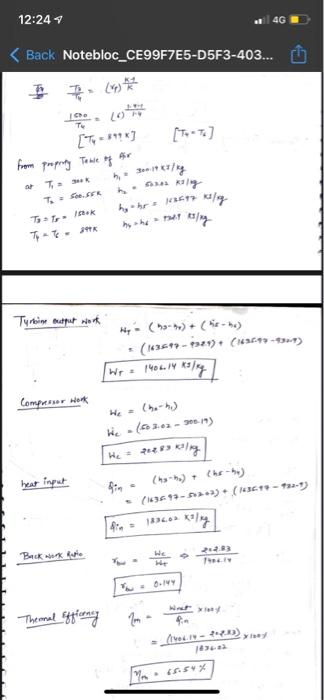 12:24
4G
Back Notebloc_CE99F7E5-D5F3-403...
T3/T4 = (rp)^(K-1)/K
1500/T4 = (6)^(1.4-1)/1.4
[T4 = 899 K] [T4 = T6]
from property Table of Air
at T1 = 300K h1 = 300.19 KJ/kg
T2 = 500.55K h2 = 503.02 KJ/kg
T3 = T5 = 1500K h3 = h5 = 1635.97 KJ/kg
T4 = T6 = 899K h4 = h6 = 932.9 KJ/kg
Turbine output work
WT = (h3-h4) + (h5-h6)
= (1635.97-932.9) + (1635.97-932.9)
WT = 1406.14 KJ/kg
Compressor Work
Wc = (h2-h1)
Wc = (503.02 - 300.19)
Wc = 202.83 KJ/kg
heat input
qin = (h3-h2) + (h5-h4)
= (1635.97-503.02) + (1635.97-932.9)
qin = 1836.02 KJ/kg
Back Work Ratio
rbw = Wc/WT ⇒ 202.83/1406.14
rbw = 0.144
Thermal Efficiency
= Wnet/qin x100%
= (1406.14 - 202.83)/1836.02 x100%
= 65.54 %